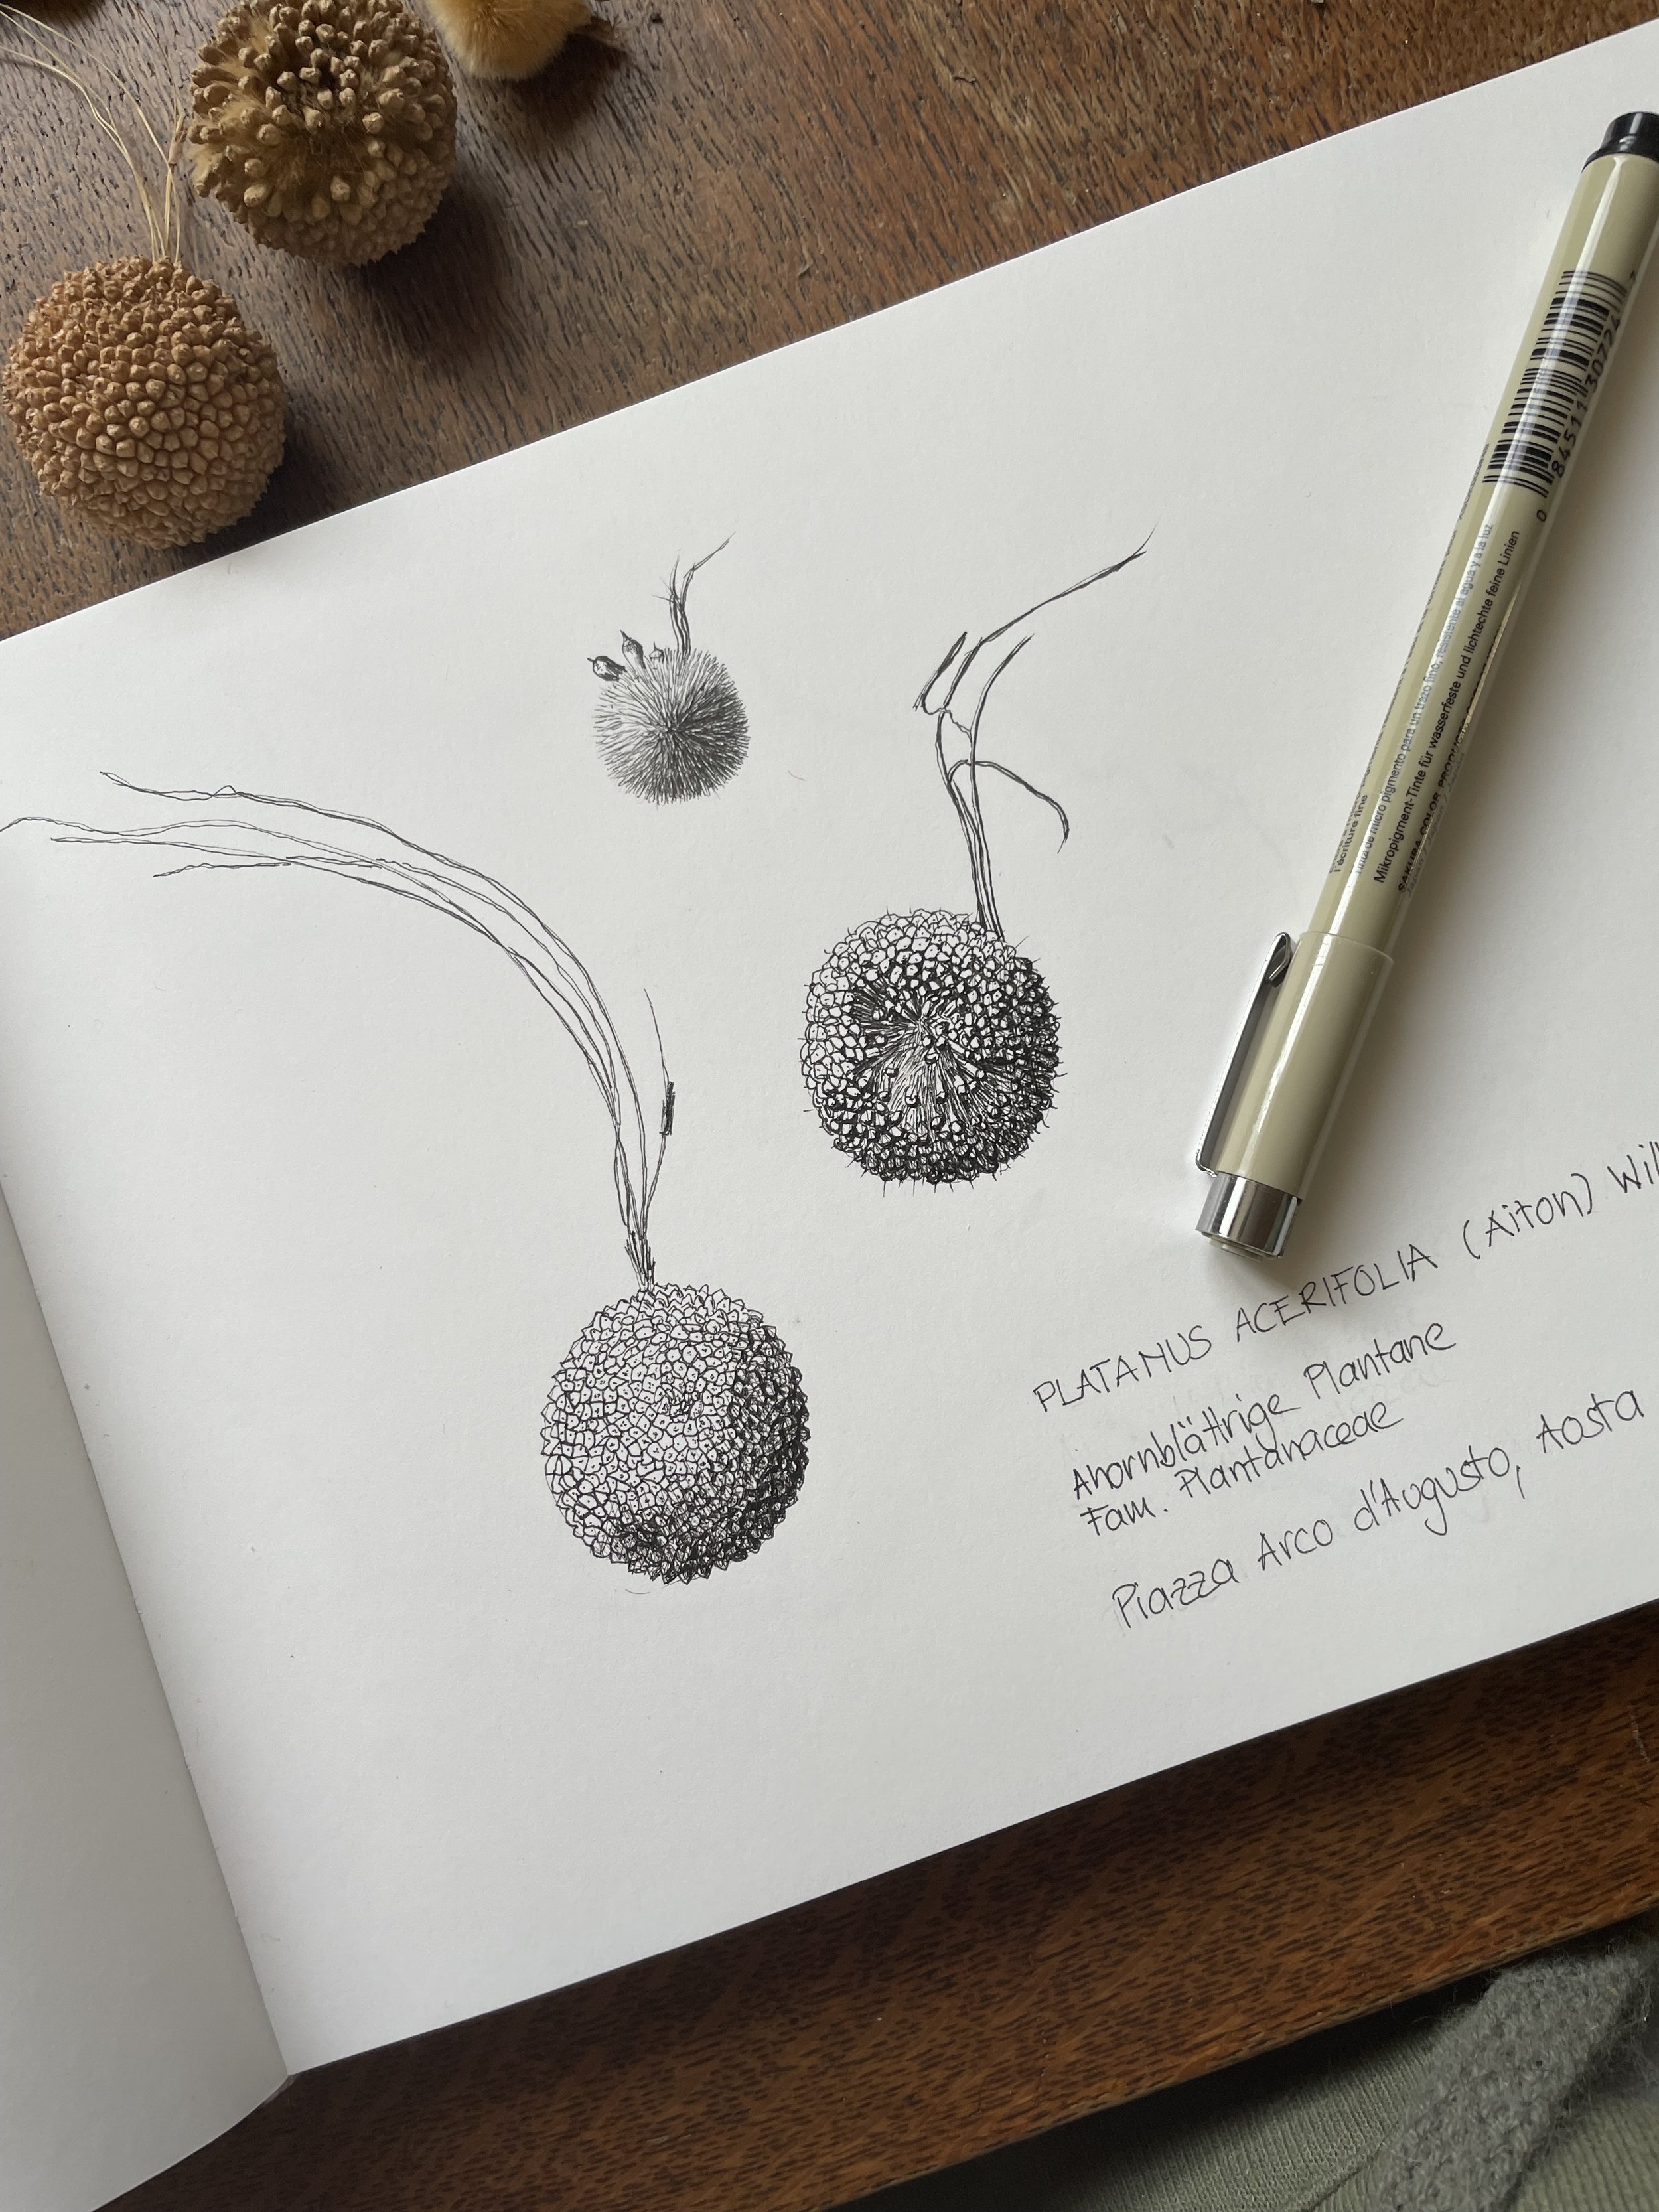 PLATANUS ACERIFOLIA (Aiton) Will
Ahornblättrige Plantane
Fam. Plantanaceae
Piazza Arco d'Augusto, Aosta
l'écriture fine
Tinta de micro pigmento para un trazo fino, resistente al agua y a la luz
Mikropigment-Tinte für wasserfeste und lichtechte feine Linien
SAKURA COLOR PRODUCTS